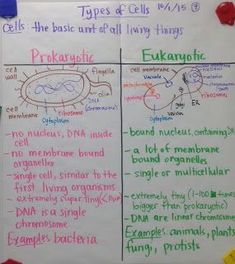 Types of Cells 10/1/15
Cells - the basic unit of all living things
Prokaryotic
cell wall
flagella
DNA (chromosome)
cell membrane
ribosome
Cytoplasm
- no nucleus, DNA inside
cell
- no membrane bound
organelles
- single cell, similar to the
first living organisms
- extremely super tiny
- DNA is a single
chromosome
Examples: bacteria
Eukaryotic
cell membrane
mitochondria
nucleus
vacuole
DNA (chromosomes)
ribosome
ER
Cytoplasm
- bound nucleus, containing DNA
- a lot of membrane
bound organelles
- single or multicellular
- extremely tiny (1-100 times
bigger than prokaryotic)
- DNA are linear chromosomes
Examples: animals, plants
fungi, protists